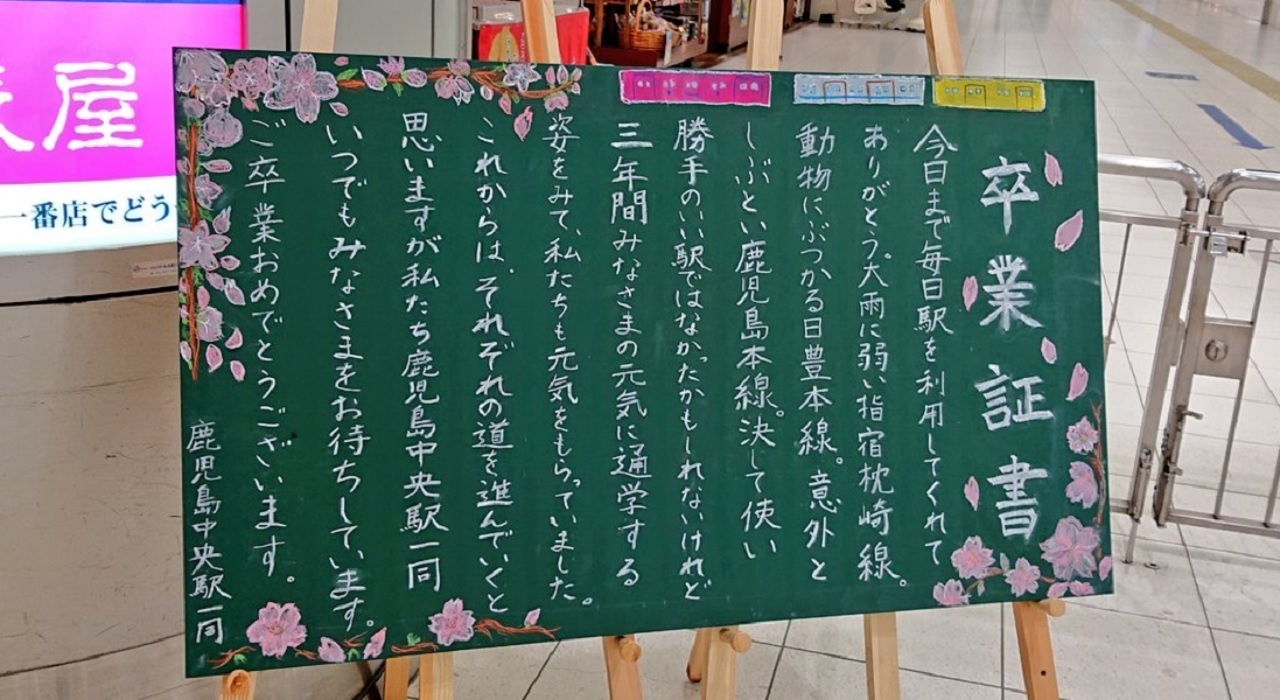 卒業証書
今日まで毎日駅を利用してくれて
ありがとう。大雨に弱い指宿枕崎線。
動物にぶつかる日豊本線。意外と
しぶとい鹿児島本線。決して使い
勝手のいい駅ではなかったかもしれないけれど
三年間みなさまの元気に通学する
姿をみて、私たちも元気をもらっていました。
これからは、それぞれの道を進んでいくと
思いますが私たち鹿児島中央駅一同
いつでもみなさまをお待ちしています。
ご卒業おめでとうございます。
鹿児島中央駅一同
屋
一番店でどう